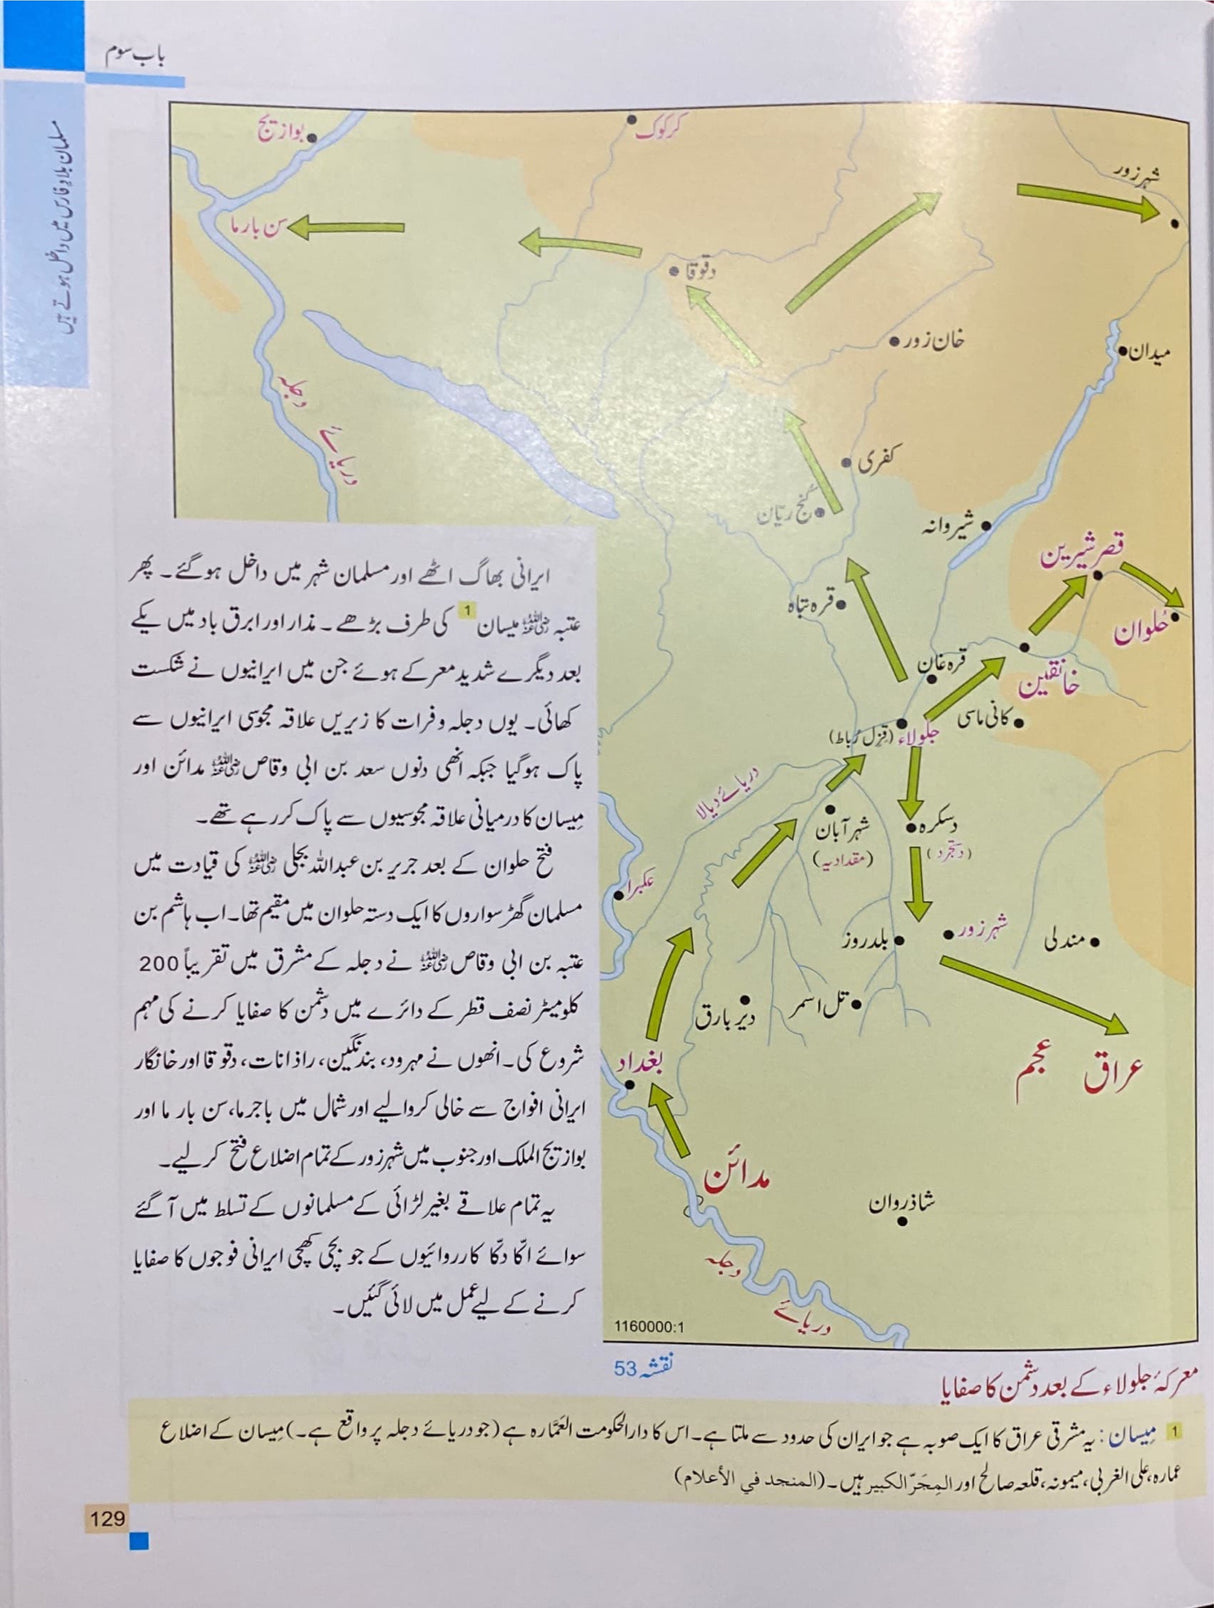 باب سوم
مسلمان بلادِ فارس میں داخل ہوتے ہیں
بوازیج
کرکوک
شہرزور
سن بارما
دقوقا
خان زور
میدان
دریائے دجلہ
کفری
گنج ریّان
شیروانہ
قصر شیرین
حُلوان
قرہ تپاہ
قرہ غان
خانقین
کانی ماسی
جلولاء (قِزِل رُباط)
دریائے دیالا
شہر آبان
(مقدادیہ)
دسکرہ
(دستجرد)
عکبرا
شہرزور
بلدروز
مندلی
دیر بارق
تل اسمر
بغداد
عراق عجم
مدائن
شاذروان
دریائے دجلہ
1160000:1
ایرانی بھاگ اٹھے اور مسلمان شہر میں داخل ہوگئے۔ پھر
عتبہ رضی اللہ عنہ میسان 1 کی طرف بڑھے۔ مذار اور ابرق باد میں یکے
بعد دیگرے شدید معرکے ہوئے جن میں ایرانیوں نے شکست
کھائی۔ یوں دجلہ و فرات کا زیریں علاقہ مجوسی ایرانیوں سے
پاک ہوگیا جبکہ انھی دنوں سعد بن ابی وقاص رضی اللہ عنہ مدائن اور
مِیسان کا درمیانی علاقہ مجوسیوں سے پاک کر رہے تھے۔
فتح حلوان کے بعد جریر بن عبداللہ بجلی رضی اللہ عنہ کی قیادت میں
مسلمان گھڑ سواروں کا ایک دستہ حلوان میں مقیم تھا۔ اب ہاشم بن
عتبہ بن ابی وقاص رضی اللہ عنہ نے دجلہ کے مشرق میں تقریباً 200
کلومیٹر نصف قطر کے دائرے میں دشمن کا صفایا کرنے کی مہم
شروع کی۔ انھوں نے مہرود، بندنگین، راذانات، دقوقا اور خانگار
ایرانی افواج سے خالی کروا لیے اور شمال میں باجرما، سن بار ما اور
بوازیج الملک اور جنوب میں شہرزور کے تمام اضلاع فتح کر لیے۔
یہ تمام علاقے بغیر لڑائی کے مسلمانوں کے تسلط میں آ گئے
سوائے اکّا دکّا کارروائیوں کے جو بچی کھچی ایرانی فوجوں کا صفایا
کرنے کے لیے عمل میں لائی گئیں۔
نقشہ 53
معرکۂ جلولاء کے بعد دشمن کا صفایا
1 مِیسان: یہ مشرقی عراق کا ایک صوبہ ہے جو ایران کی حدود سے ملتا ہے۔ اس کا دارالحکومت العَمّارہ ہے (جو دریائے دجلہ پر واقع ہے۔) مِیسان کے اضلاع
عمارہ، علی الغربی، میمونہ، قلعہ صالح اور المِجَرّ الکبیر ہیں۔ (المنجد في الأعلام)
129